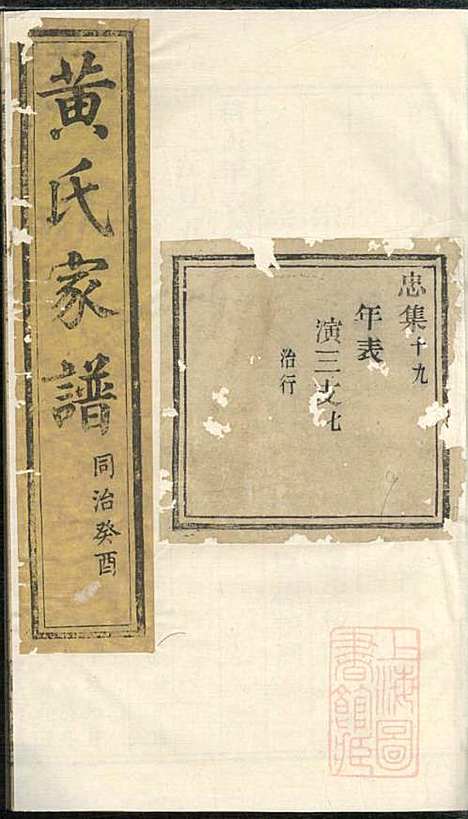 黄氏家譜
同治癸酉
忠集十九
年表
演三支
治行
上海圖
書館